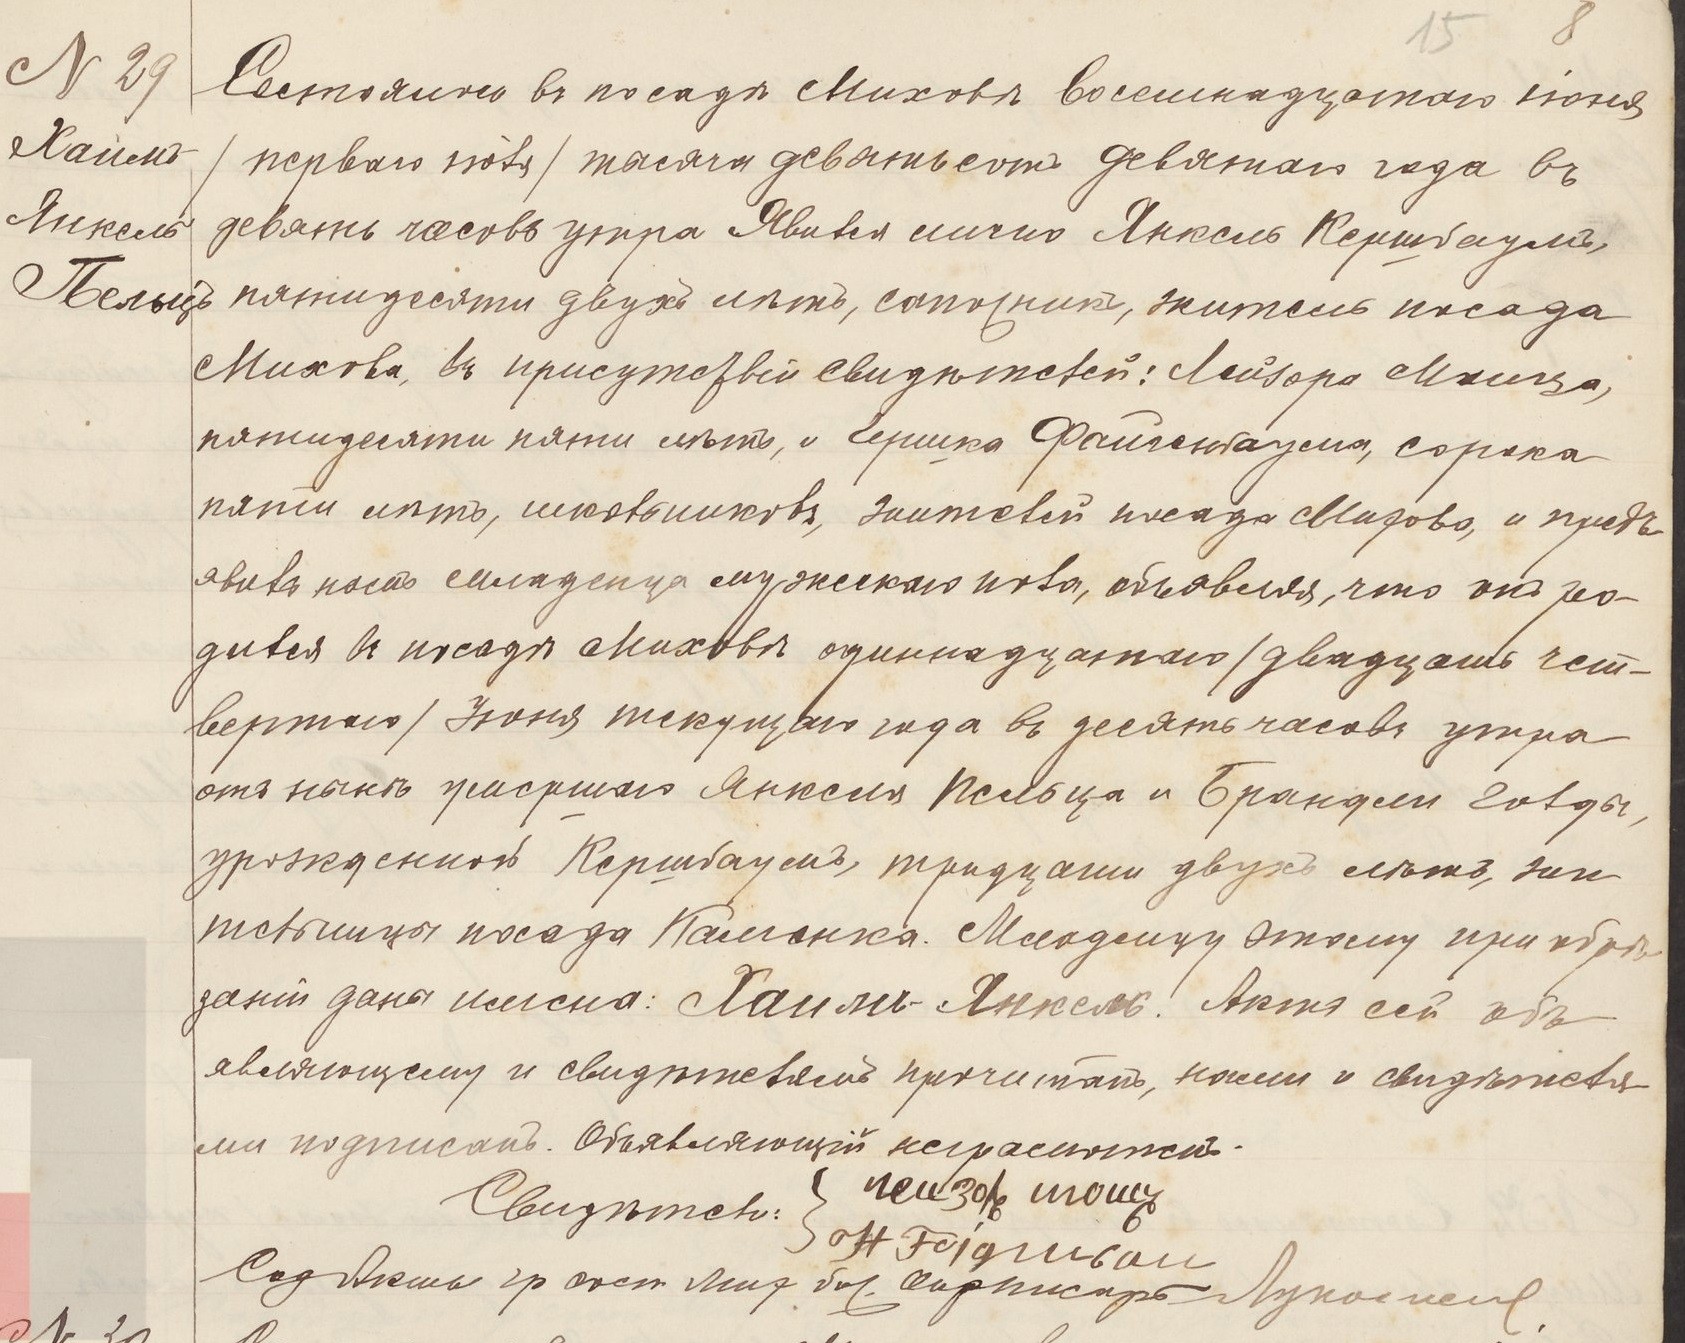 15 8
N 29 Состоялось въ посадѣ Миховѣ Восемнадцатаго іюня
Хаимъ / перваго іюля / тысяча девятьсотъ девятаго года въ
Янкель девять часовъ утра Явился лично Янкель Кершбаумъ,
Пельцъ пятидесяти двухъ лѣтъ, сапожникъ, житель посада
Михова, въ присутствіи свидѣтелей: Лейзора
пятидесяти пяти лѣтъ, и Гершка Файгенбаума, сорока
пяти лѣтъ, школьниковъ, жителей посада Михова, и предъ-
явилъ намъ младенца мужескаго пола, объявляя, что онъ ро-
дился въ посадѣ Миховѣ одиннадцатаго / двадцать чет-
вертаго / Іюня текущаго года въ десять часовъ утра
отъ нынѣ умершаго Янкеля Пельца и Брандли Голды,
урожденной Кершбаумъ, тридцати двухъ лѣтъ, жи-
тельницы посада Каменка. Младенцу этому при обрѣ-
заніи даны имена: Хаимъ-Янкель. Актъ сей объ-
являющему и свидѣтелямъ прочитанъ, нами и свидѣтеля-
ми подписанъ. Объявляющій неграмотенъ.
Свидѣтели:
Сод Акты гр сост
N 30